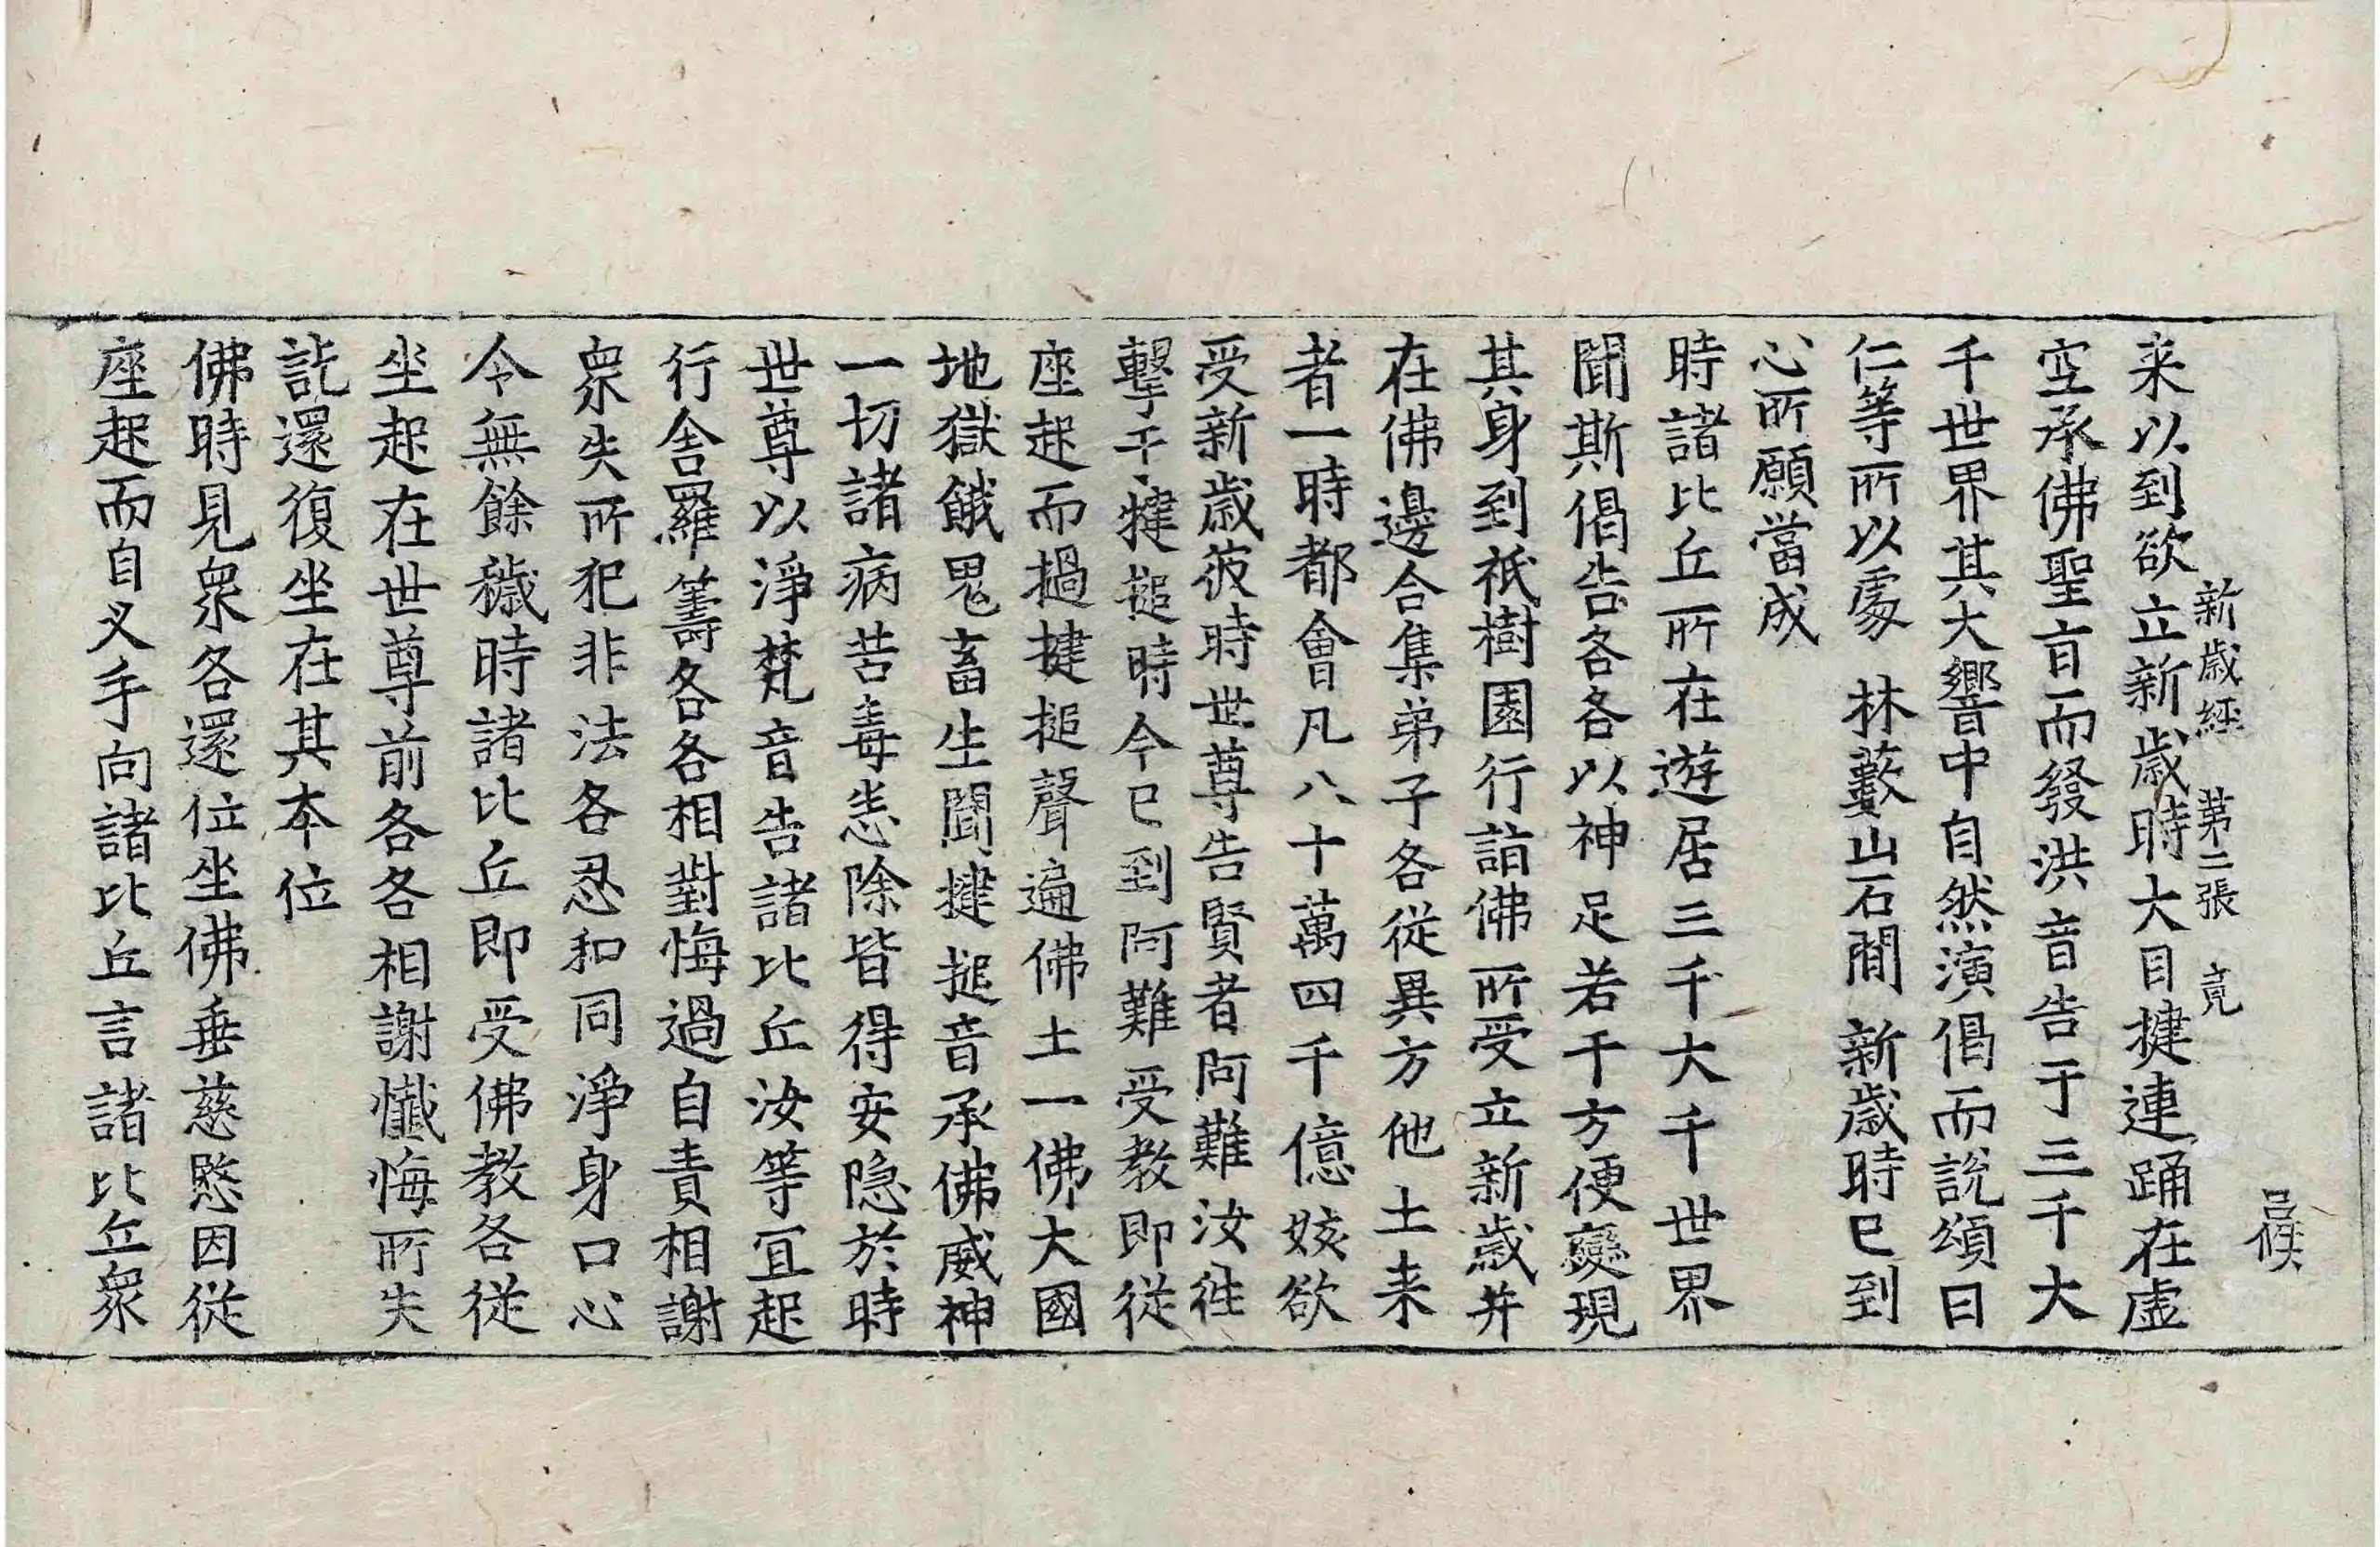 新歳經 第二張 竟
来以到欲立新歳時大目揵連踊在虛
空承佛聖㫖而發洪音告于三千大
千世界其大響中自然演偈而說頌曰
仁等所以處 林藪山石間 新歳時已到
心所願當成
時諸比丘所在遊居三千大千世界
聞斯偈告各各以神足若干方便變現
其身到祇樹園行詣佛所受立新歳并
在佛邊合集弟子各從異方他土来
者一時都會凡八十萬四千億姟欲
受新歳彼時世尊告賢者阿難汝往
擊于犍搥時今已到阿難受教即從
座起而撾揵搥聲遍佛土一佛大國
地獄餓鬼畜生聞揵搥音承佛威神
一切諸病苦毒恙除皆得安隠於時
世尊以淨梵音告諸比丘汝等宜起
行舎羅籌各各相對悔過自責相謝
衆失所犯非法各忍和同淨身口心
令無餘穢時諸比丘即受佛教各從
坐起在世尊前各各相謝懺悔所失
訖還復坐在其本位
佛時見衆各還位坐佛垂慈愍因從
座起而自叉手向諸比丘言諸比丘衆